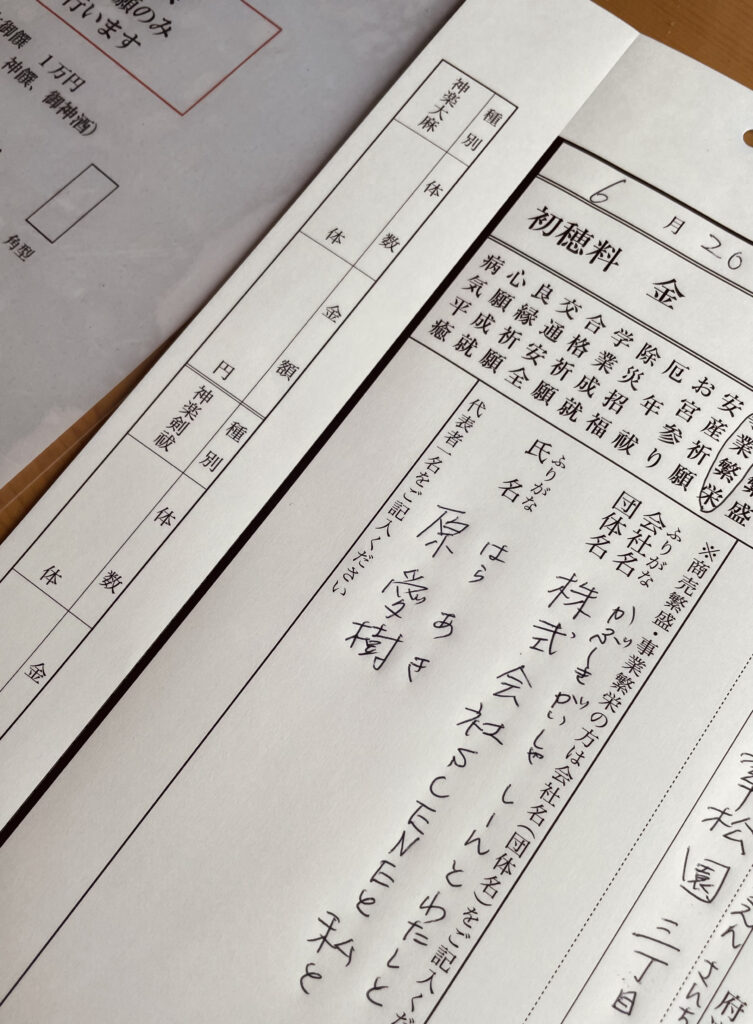 願のみ
行います
御饌 1万円
神饌、御神酒)
角型
種別
神楽大麻
体数
体
金額
円
種別
神楽剣祓
体数
体
金
6月26
初穂料 金
事業繁栄
安産祈願
お宮参り
厄年祓
除災招福
学業成就
合格祈願
交通安全
良縁祈願
心願成就
病気平癒
※商売繁盛・事業繁栄の方は会社名(団体名)をご記入くだ
ふりがな
会社名
団体名
かぶしきがいしゃ しーんとわたしと
株式会社SCENEと私と
ふりがな
氏名
はら あき
原 愛樹
代表者一名をご記入ください
松園 三丁目